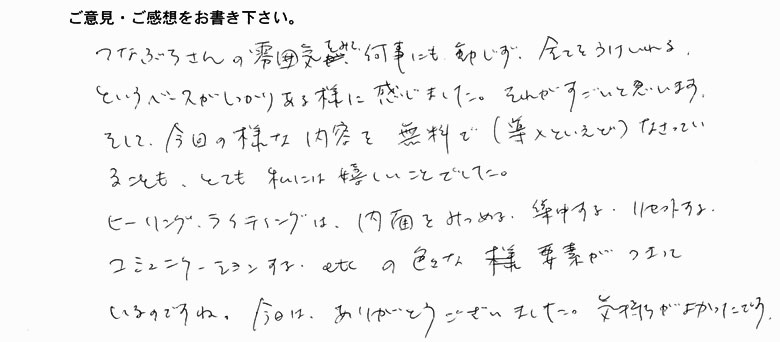 ご意見・ご感想をお書き下さい。
つなぶちさんの雰囲気をみて、何事にも動じず、全てをうけいれる、
というベースがしっかりある様に感じました。それがすごいと思います。
そして、今回の様な内容を無料で(導入といえど)なさってい
ることも、とても私には嬉しいことでした。
ヒーリング・ライティングは、内面をみつめる、集中する、リセットする、
コミュニケーションする、etc の色々な要素がつまって
いるのですね。今日は、ありがとうございました。気持ちがよかったです。